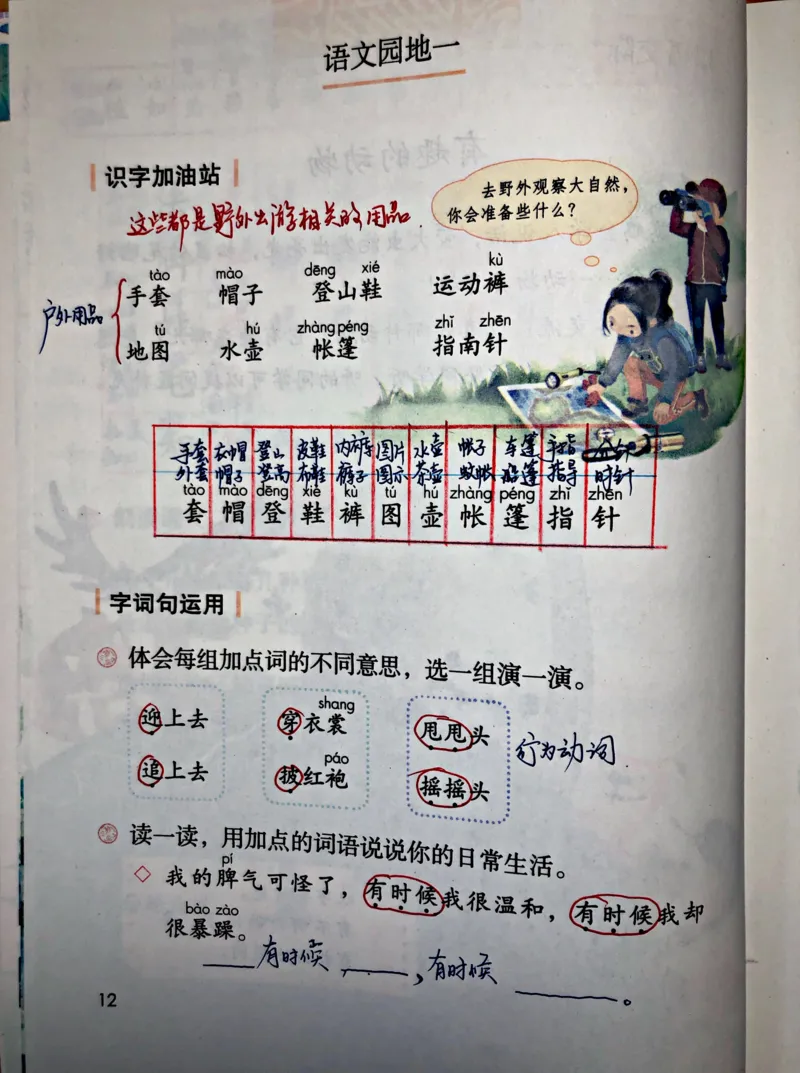 语文园地一
识字加油站
去野外观察大自然，
你会准备些什么？
这些都是野外出游相关的用品
tào mào dēng xié kù
手套 帽子 登山鞋 运动裤
户外用品
tú hú zhàng péng zhǐ zhēn
地图 水壶 帐篷 指南针
手套 衣帽 登山 皮鞋 内裤 图片 水壶 帐子 车篷 手指
外套 帽子 登高 布鞋 裤子 图示 茶壶 蚊帐 船篷 指导 时针
tào mào dēng xié kù tú hú zhàng péng zhǐ zhēn
套 帽 登 鞋 裤 图 壶 帐 篷 指 针
字词句运用
体会每组加点词的不同意思，选一组演一演。
shang
迎上去 穿衣裳 甩甩头 行为动词
páo
追上去 披红袍 摇摇头
读一读，用加点的词语说说你的日常生活。
pí
我的脾气可怪了，有时候我很温和，有时候我却
bào zào
很暴躁。
有时候 ，有时候 。
12